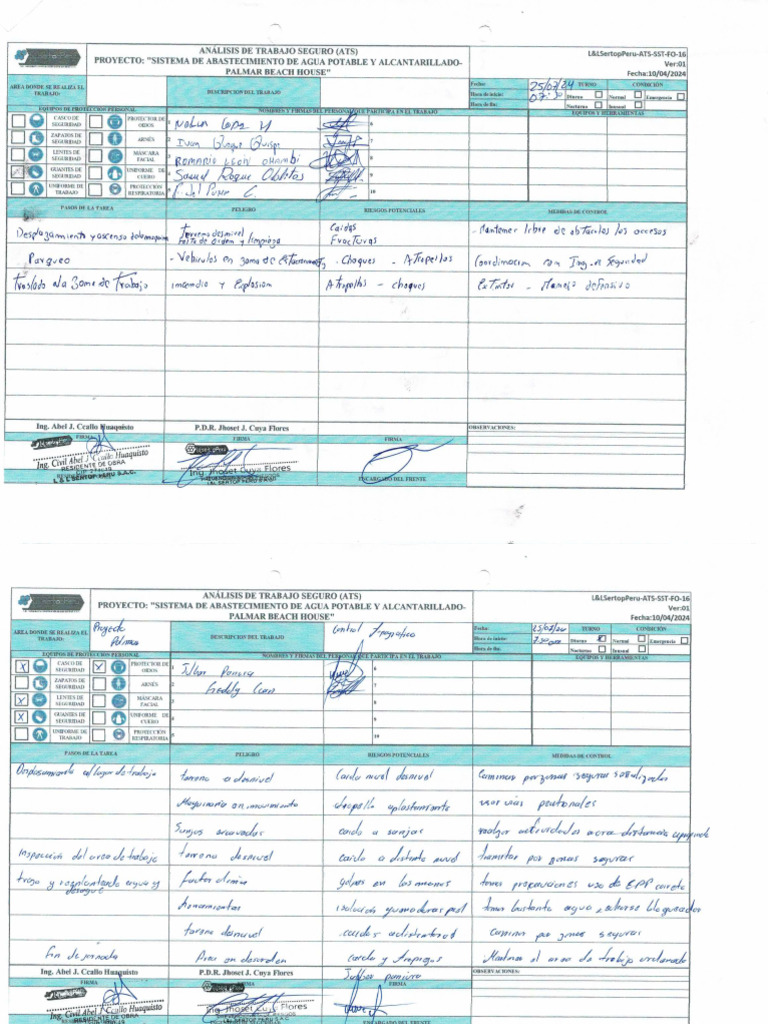 ANÁLISIS DE TRABAJO SEGURO (ATS)
PROYECTO: "SISTEMA DE ABASTECIMIENTO DE AGUA POTABLE Y ALCANTARILLADO-
PALMAR BEACH HOUSE"
L&LSertopPeru-ATS-SST-FO-16
Ver:01
Fecha:10/04/2024
AREA DONDE SE REALIZA EL TRABAJO:
DESCRIPCION DEL TRABAJO
Fecha: 25/07/24 TURNO CONDICIÓN
Hora de inicio: 07: Diurno Normal Emergencia
Hora de fin: Nocturno Inusual
EQUIPOS DE PROTECCIÓN PERSONAL
NOMBRES Y FIRMAS DEL PERSONAL QUE PARTICIPA EN EL TRABAJO
EQUIPOS Y HERRAMIENTAS
CASCO DE SEGURIDAD PROTECTOR DE OIDOS 1 6
ZAPATOS DE SEGURIDAD ARNÉS 2 Ivan Quispe Quispe 7
LENTES DE SEGURIDAD MÁSCARA FACIAL 3 ROMARIO LEON 8
GUANTES DE SEGURIDAD UNIFORME DE CUERO 4 Roque 9
UNIFORME DE TRABAJO PROTECCIÓN RESPIRATORIA 5 10
PASOS DE LA TAREA PELIGRO RIESGOS POTENCIALES MEDIDAS DE CONTROL
Desplazamiento y ascenso Terreno desnivel Caidas - Mantener libre de obstaculos los accesos
Falta de orden y limpieza Fracturas
Parqueo - Vehiculos en zona de estacionamiento - Choques - Atropellos Coordinacion con Ing. Seguridad
Traslado a la zona de Trabajo Incendio y Explosion Atropellos - choques Extintor - Manejo defensivo
Ing. Abel J. Ccallo Huaquisto P.D.R. Jhoset J. Cuya Flores OBSERVACIONES:
FIRMA FIRMA FIRMA
Ing. Civil Abel J. Ccallo Huaquisto
RESIDENTE DE OBRA
L & L SERTOP PERU S.A.C.
Ing. Jhoset Cuya Flores
ENCARGADO DEL FRENTE
ANÁLISIS DE TRABAJO SEGURO (ATS)
PROYECTO: "SISTEMA DE ABASTECIMIENTO DE AGUA POTABLE Y ALCANTARILLADO-
PALMAR BEACH HOUSE"
L&LSertopPeru-ATS-SST-FO-16
Ver:01
Fecha:10/04/2024
AREA DONDE SE REALIZA EL TRABAJO: Proyecto Palmar
DESCRIPCION DEL TRABAJO Control Topográfico
Fecha: 25/07/24 TURNO CONDICIÓN
Hora de inicio: 7:00 am Diurno Normal Emergencia
Hora de fin: Nocturno Inusual
EQUIPOS DE PROTECCIÓN PERSONAL
NOMBRES Y FIRMAS DEL PERSONAL QUE PARTICIPA EN EL TRABAJO
EQUIPOS Y HERRAMIENTAS
X CASCO DE SEGURIDAD X PROTECTOR DE OIDOS 1 6
ZAPATOS DE SEGURIDAD ARNÉS 2 Freddy 7
X LENTES DE SEGURIDAD MÁSCARA FACIAL 3 8
X GUANTES DE SEGURIDAD UNIFORME DE CUERO 4 9
UNIFORME DE TRABAJO PROTECCIÓN RESPIRATORIA 5 10
PASOS DE LA TAREA PELIGRO RIESGOS POTENCIALES MEDIDAS DE CONTROL
Desplasamiento al lugar de trabajo terreno a desnivel caida nivel desnivel Caminar por zonas seguras señalizadas
Maquinaria en movimiento atropello aplastamiento usar vias peatonales
Sanjas excavadas caida a sanjas realizar actividades a una distancia
Inspección del area de trabajo terreno desnivel caida a distinto nivel transitar por zonas seguras
trazo y replanteando agua y desague golpes en las manos uso de EPP
herramientas tomar bastante agua
tereno desnivel caidas Caminar por zonas seguras
Fin de jornada Area en desorden caida y tropiezos Mantener el area de trabajo ordenado
Ing. Abel J. Ccallo Huaquisto P.D.R. Jhoset J. Cuya Flores OBSERVACIONES:
FIRMA FIRMA FIRMA
Ing. Civil Abel J. Ccallo Huaquisto
RESIDENTE DE OBRA
Ing. Jhoset Cuya Flores
ENCARGADO DEL FRENTE